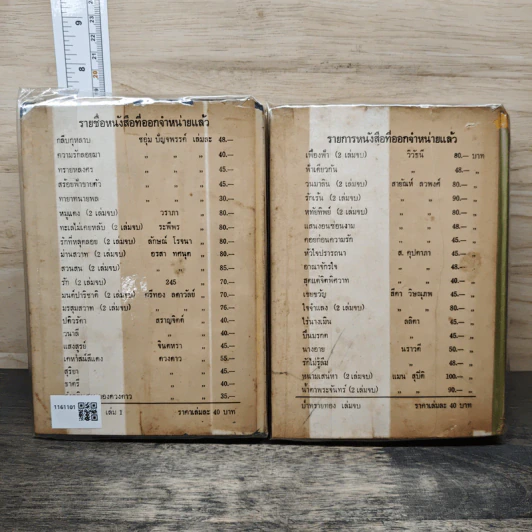 รายชื่อหนังสือที่ออกจำหน่ายแล้ว
กลีบกุหลาบ ชอุ่ม ปัญจพรรค์ เล่มละ 48.—
ความรักลอยมา " " 40.—
ทรายหลงศร " " 45.—
สร้อยฟ้าขายตัว " " 45.—
ทายาทนายพล " " 30.—
หมูแดง (2 เล่มจบ) วราภา " 80.—
ทะเลไม่เคยหลับ (2 เล่มจบ) ระพีพร " 80.—
รักที่หลุดลอย (2 เล่มจบ) ลักษณ์ โรจนา " 80.—
ม่านสวาท (2 เล่มจบ) อรสา ทศนุต " 80.—
สวนสน (2 เล่มจบ) " " 85.—
รัก (2 เล่มจบ) 245 " 70.—
มนต์ปาริชาติ (2 เล่มจบ) ศรีทอง ลดาวัลย์ " 70.—
มรสุมสวาท (2 เล่มจบ) " " 76.—
ปดิวรัดา สราญจิตต์ " 40.—
วนาลี " " 40.—
แสงสูรย์ จินตหรา " 45.—
เคหาสน์สีแดง ดวงดาว " 55.—
สุริยา " " 40.—
ราตรี " " 40.—
ของดวงดาว " " 35.—
เล่ม 1 ราคาเล่มละ 40 บาท
1161101
รายการหนังสือที่ออกจำหน่ายแล้ว
เพียงฟ้า วิวิธนี 80.— บาท
ฟ้าเดียวกัน " 48.— "
วนมาลิน (2 เล่มจบ) สายัณห์ ลวพงศ์ 80.— "
รักเร้น (2 เล่มจบ) " 90.— "
หทัยทิพย์ (2 เล่มจบ) " 80.— "
แสนงอนซ่อนงาม " 48.— "
คอยก่อนความรัก " 45.— "
หัวใจปรารถนา ส. คุปตาภา 45.— "
อาณาจักรใจ " 48.— "
สุดแต่จิตพิศวาท " 40.— "
เชยขวัญ สีดา วิษณุภพ 45.— "
ใจจำแลง (2 เล่มจบ) " 70.— "
ไร้นางเมิน ลลิตา 45.— "
ปิ่นมรกต " 45.— "
นางอาย นราวดี 50.— "
รักไม่รู้ลืม " 45.— "
หนามเสน่หา (2 เล่มจบ) แมน สุปิติ 100.— "
น้ำตาพระจันทร์ (2 เล่มจบ) " 90.— "
ป่าพรายทอง เล่มจบ ราคาเล่มละ 40 บาท
8
9
20